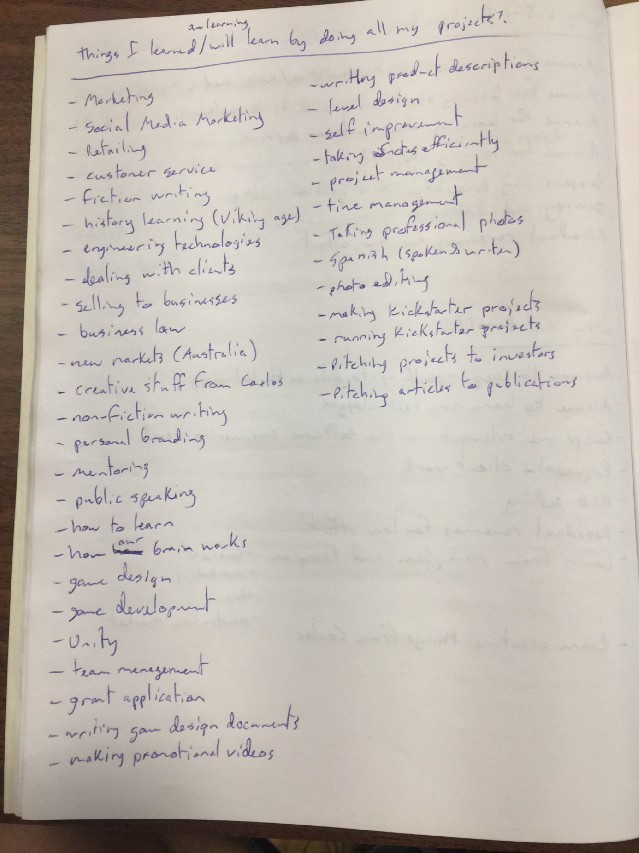 am learning
things I learned/will learn by doing all my projects?
- Marketing
- Social Media Marketing
- Retailing
- customer service
- fiction writing
- history learning (Viking age)
- engineering technologies
- dealing with clients
- selling to businesses
- business law
- new markets (Australia)
- creative stuff from Carlos
- non-fiction writing
- personal branding
- mentoring
- public speaking
- how to learn
- how our brain works
- game design
- game development
- Unity
- team management
- grant application
- writing gam design documents
- making promotional videos
- writing product descriptions
- level design
- self improvement
- taking notes efficiently
- project management
- time management
- Taking professional photos
- Spanish (spoken & writen)
- photo editing
- making Kickstarter projects
- running Kickstarter projects
- Pitching projects to investors
- Pitching articles to publications